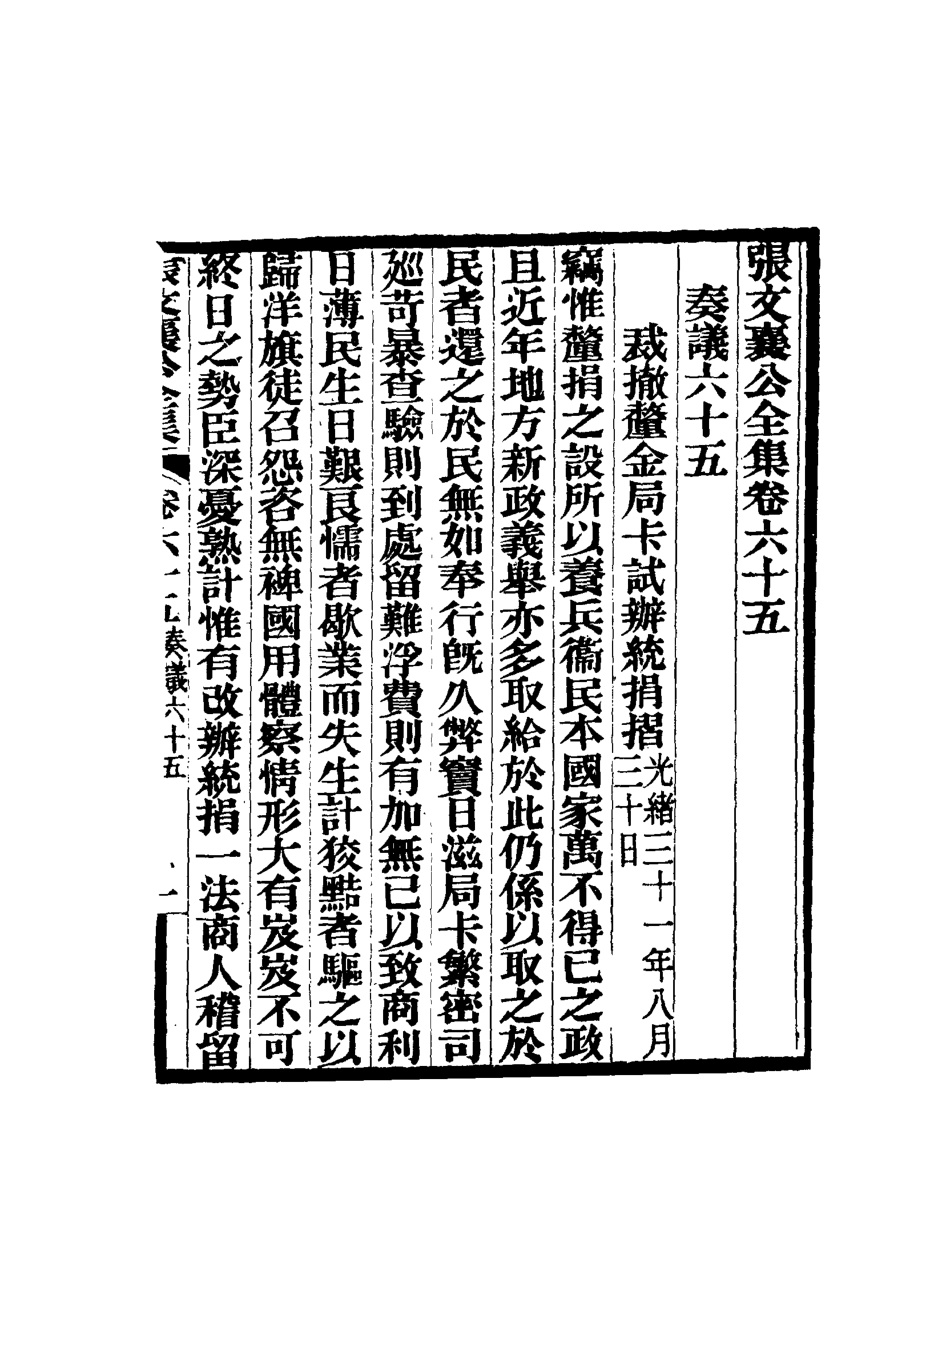 張文襄公全集卷六十五
奏議六十五
裁撤釐金局卡試辦統捐摺光緒三十一年八月
三十日
竊惟釐捐之設所以養兵衞民本國家萬不得已之政
且近年地方新政義舉亦多取給於此仍係以取之於
民者還之於民無如奉行旣久弊竇日滋局卡繁密司
廵苛暴查驗則到處留難浮費則有加無已以致商利
日薄民生日艱良懦者歇業而失生計狡黠者驅之以
歸洋旗徒召怨咨無裨國用體察情形大有岌岌不可
終日之勢臣深憂熟計惟有改辦統捐一法商人稽留
張文襄公全集 卷六十五奏議六十五 一